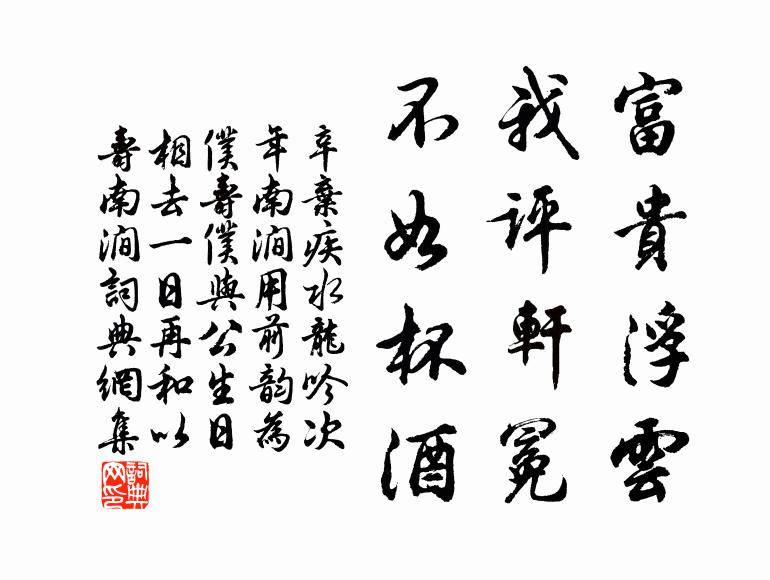 富貴浮雲
我評軒冕
不如杯酒
辛棄疾水龍吟次
年南澗用前韵為
僕壽僕與公生日
相去一日再和以
壽南澗詞典網集
詞典
网印